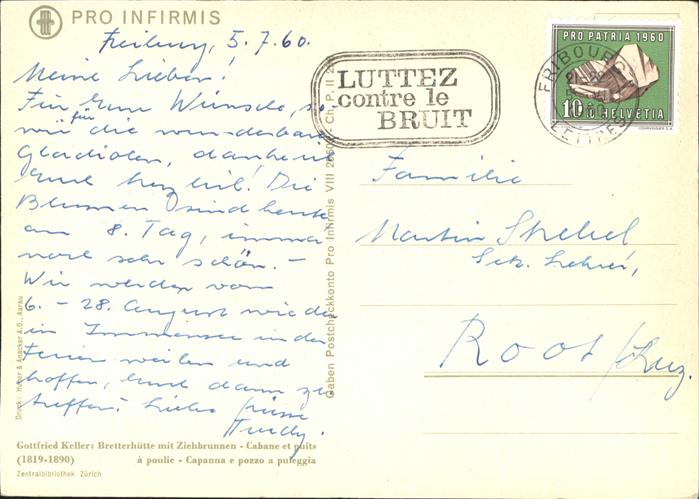 PRO INFIRMIS
Freiburg, 5.7.60.
Meine Lieben!
Für Eure Wünsche, so-
wie für die wunderbaren
Gladiolen, danke ich
Euch herzlich. Die
Blumen sind heute
am 8. Tag, immer
noch sehr schön. -
Wir werden vom
6. - 28. August wieder
in Immensee in den
Ferien weilen und
hoffen, Euch dann zu
treffen. Liebe Grüsse
LUTTEZ
contre le
BRUIT
PRO PATRIA 1960
10 HELVETIA
COURVOISIER S.A.
FRIBOURG
LETTRES
Familie
Martin Strebel
Sek. Lehrer,
Root /Luz.
Gaben Postcheckkonto Pro Infirmis VIII Ch. P. II
Druck: Huber & Anacker A.G., Aarau
Gottfried Keller: Bretterhütte mit Ziehbrunnen - Cabane et puits
(1819-1890) à poulie - Capanna e pozzo a puleggia
Zentralbibliothek Zürich